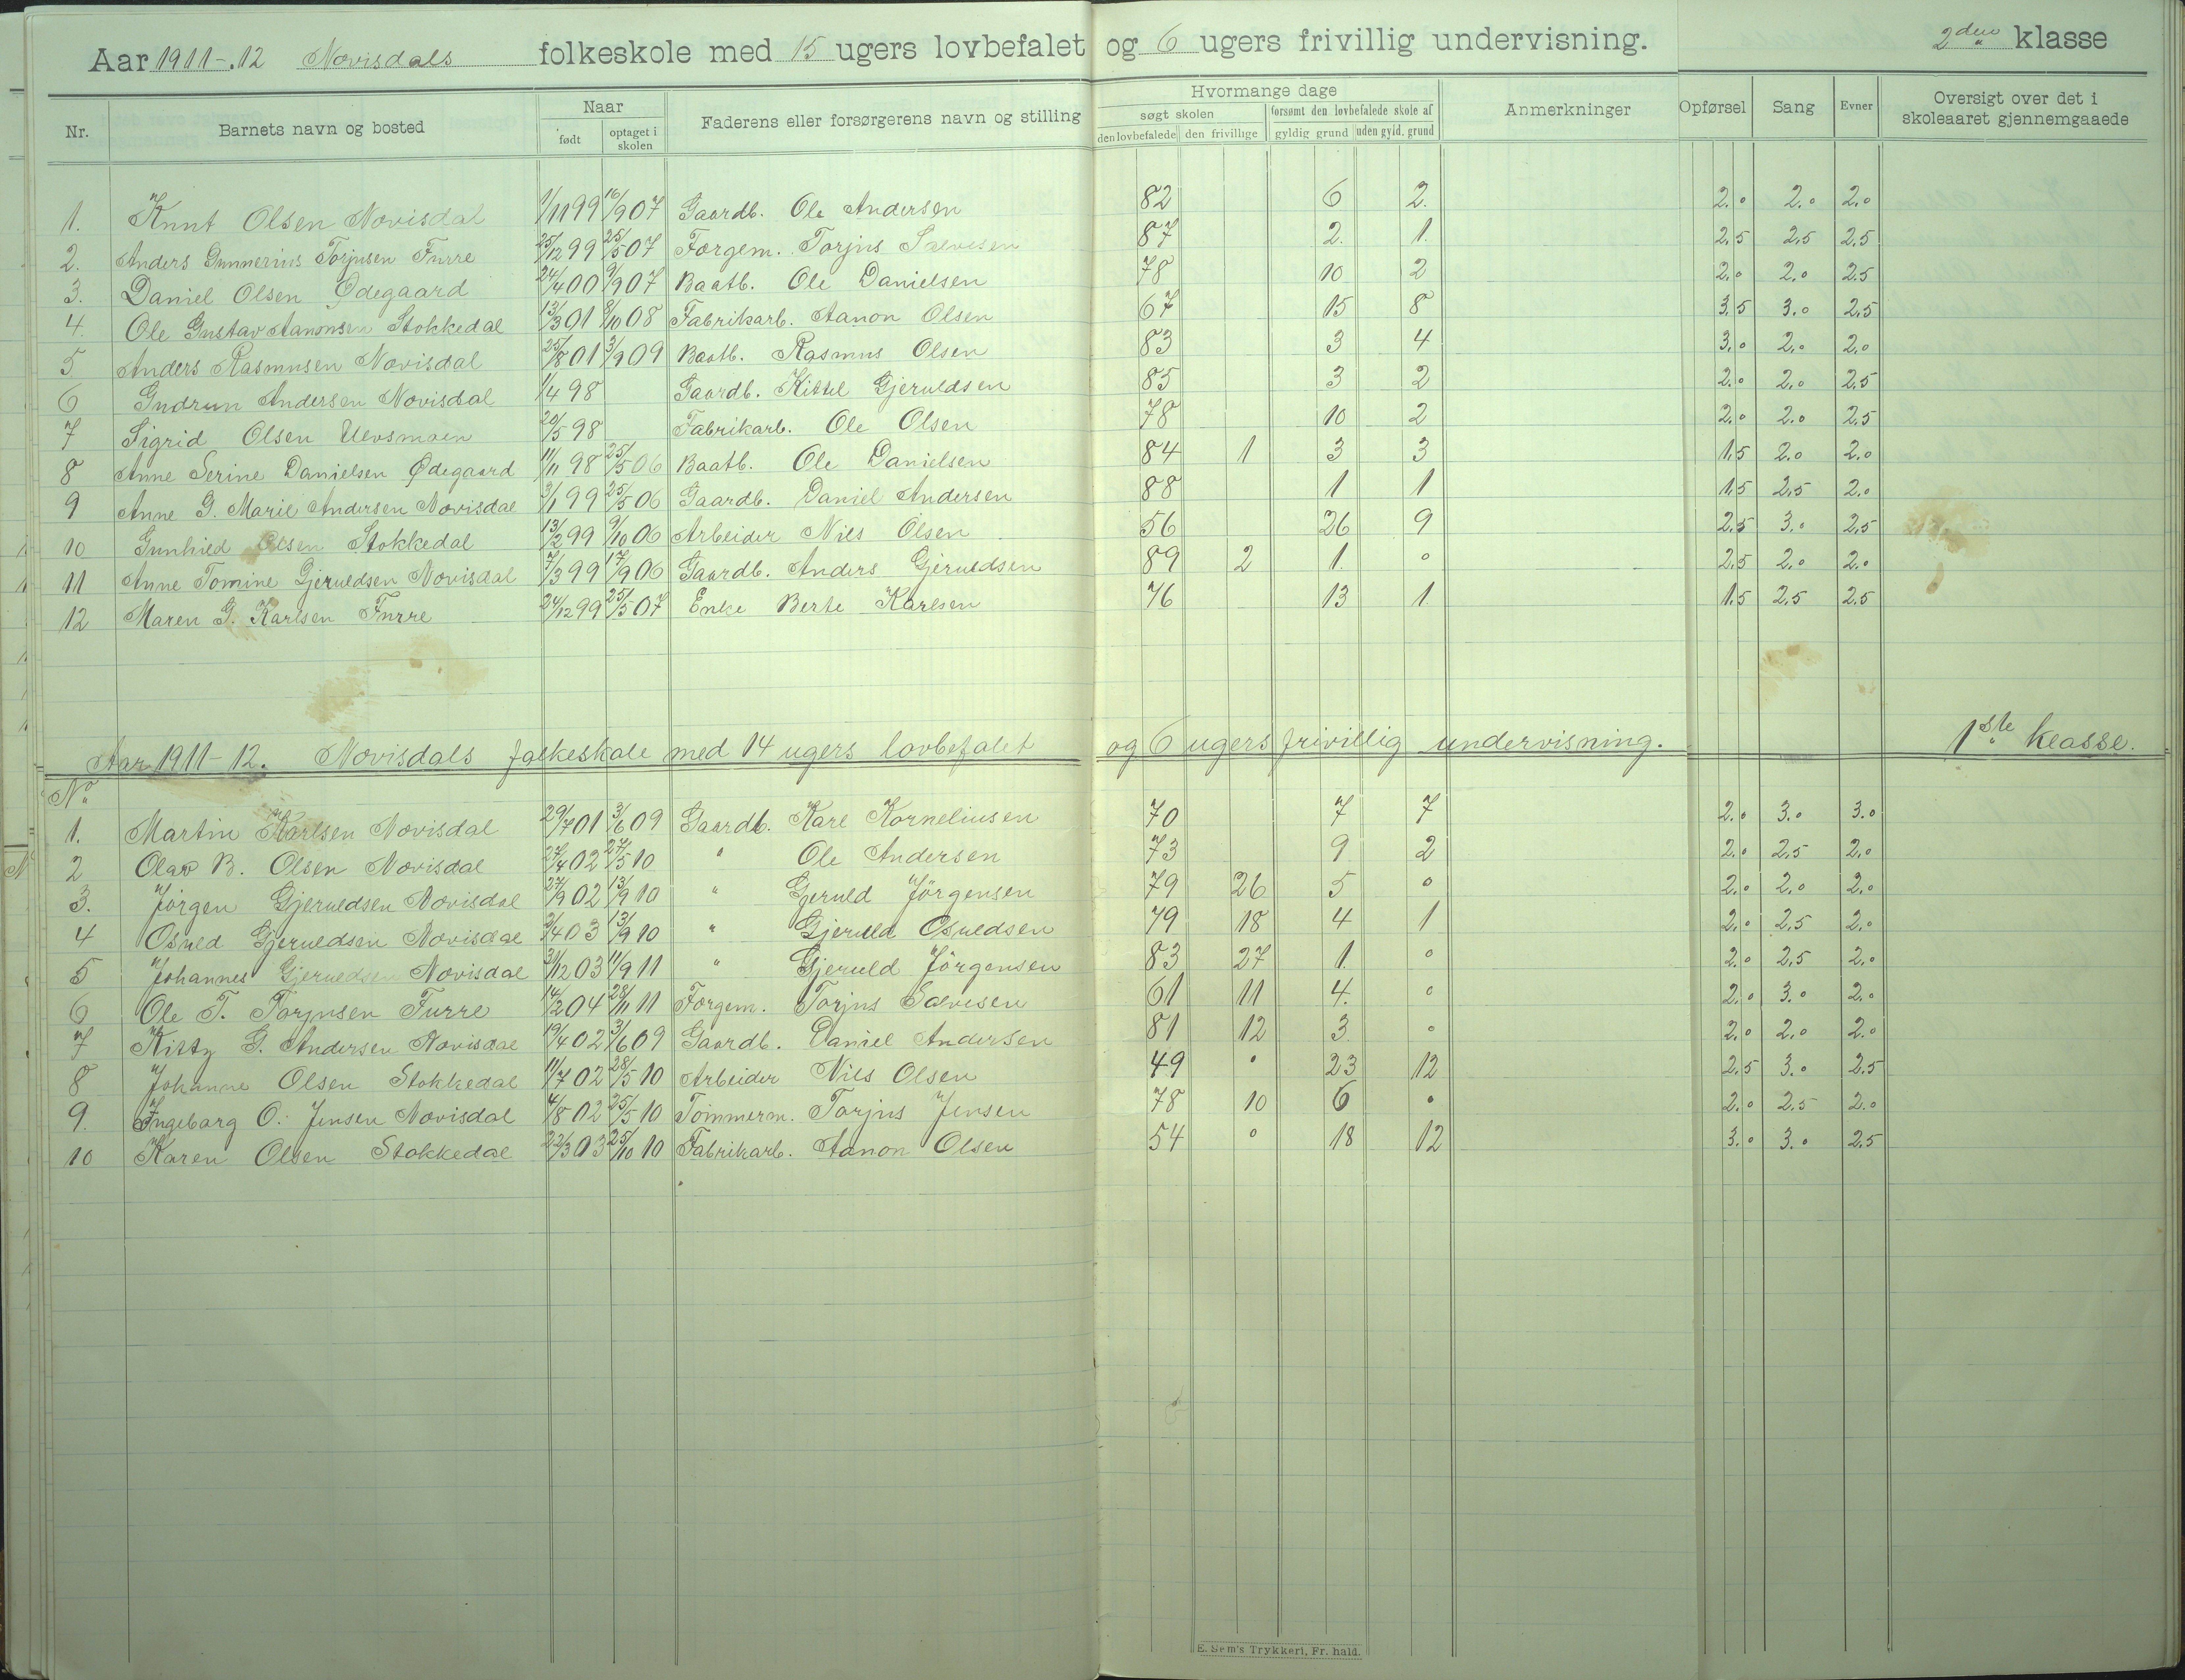 Aar 1911-12 Novisdals folkeskole med 15 ugers lovbefalet og 6 ugers frivillig undervisning. 2den klasse
Nr. Barnets navn og bosted Naar født optaget i skolen Faderens eller forsørgerens navn og stilling Hvormange dage søgt skolen den lovbefalede den frivillige forsømt den lovbefalede skole af gyldig grund uden gyld. grund Anmerkninger Opførsel Sang Evner Oversigt over det i skoleaaret gjennemgaaede
1. Knut Olsen Novisdal 1/11 99 16/9 07 Gaardb. Ole Andersen 82 6 2. 2.0 2.0 2.0
2. Anders Gunnerius Torjusen Furre 25/12 99 25/5 07 Forgem. Torjus Salvesen 87 2. 1. 2.5 2.5 2.5
3. Daniel Olsen Ødegaard 24/4 00 9/9 07 Baatb. Ole Danielsen 78 10 2 2.0 2.0 2.5
4. Ole Gustav Aanonsen Stokkedal 13/3 01 8/10 08 Fabrikarb. Aanon Olsen 67 15 8 3.5 3.0 2.5
5 Anders Rasmusen Novisdal 25/8 01 3/9 09 Baatb. Rasmus Olsen 83 3 4 3.0 2.0 2.0
6 Gudrun Andersen Novisdal 1/4 98 Gaardb. Kittel Gjeruldsen 85 3 2 2.0 2.0 2.5
7 Sigrid Olsen 20/5 98 Fabrikarb. Ole Olsen 78 10 2 2.0 2.0 2.5
8 Anne Serine Danielsen Ødegaard 11/11 98 25/5 06 Baatb. Ole Danielsen 84 1 3 3 1.5 2.0 2.0
9 Anne G. Marie Andersen Novisdal 3/1 99 25/5 06 Gaardb. Daniel Andersen 88 1 1 1.5 2.5 2.0
10 Gunhild Olsen Stokkedal 13/2 99 9/10 06 Arbeider Nils Olsen 56 26 9 2.5 3.0 2.5
11 Anne Tomine Gjeruldsen Novisdal 7/3 99 17/9 06 Gaardb. Anders Gjeruldsen 89 2 1. 0 2.5 2.0 2.0
12 Maren G. Karlsen Furre 24/12 99 25/5 07 Enke Berte Karlsen 76 13 1 1.5 2.5 2.5
Aar 1911-12. Novisdals folkeskole med 14 ugers lovbefalet og 6 ugers frivillig undervisning. 1ste klasse.
No
1. Martin Karlsen Novisdal 29/7 01 3/6 09 Gaardb. Karl Korneliusen 70 7 7 2.0 3.0 3.0
2 Olav B. Olsen Novisdal 27/4 02 27/5 10 " Ole Andersen 73 9 2 2.0 2.5 2.0
3. Jörgen Gjeruldsen Novisdal 27/9 02 13/9 10 " Gjeruld Jörgensen 79 26 5 0 2.0 2.0 2.0
4 Osuld Gjeruldsen Novisdal 3/4 03 13/9 10 " Gjeruld Osuldsen 79 18 4 1 2.0 2.5 2.0
5 Johannes Gjeruldsen Novisdal 31/12 03 11/9 11 " Gjeruld Jörgensen 83 27 1. 0 2.0 2.5 2.0
6 Ole T. Torjusen Furre 14/2 04 28/11 11 Forgem. Torjus Salvesen 61 11 4. 0 2.0 3.0 2.0
7 Kitty G. Andersen Novisdal 19/4 02 3/6 09 Gaardb. Daniel Andersen 81 12 3 0 2.0 2.0 2.0
8 Johanne Olsen Stokkedal 11/7 02 28/5 10 Arbeider Nils Olsen 49 0 23 12 2.5 3.0 2.5
9. Ingeborg O. Jensen Novisdal 4/8 02 25/5 10 Tömmerm. Torjus Jensen 78 10 6 0 2.0 2.5 2.0
10 Karen Olsen Stokkedal 22/3 03 25/10 10 Fabrikarb. Aanon Olsen 54 0 18 12 3.0 3.0 2.5
E. Sem's Trykkeri, Fr. hald.